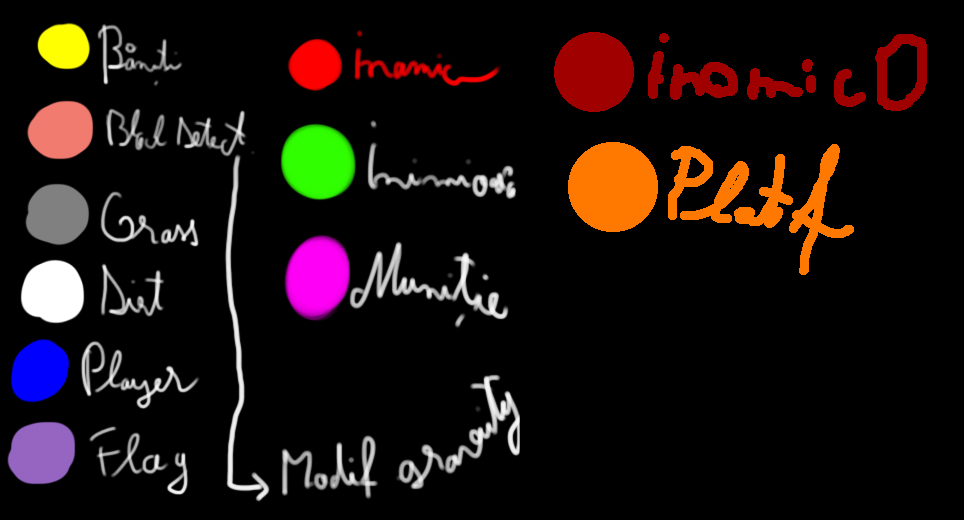 Bănuți
Detect
Grass
Dirt
Player
Flag
inamic
Muniție
Modif gravity
inamic D
PlatA